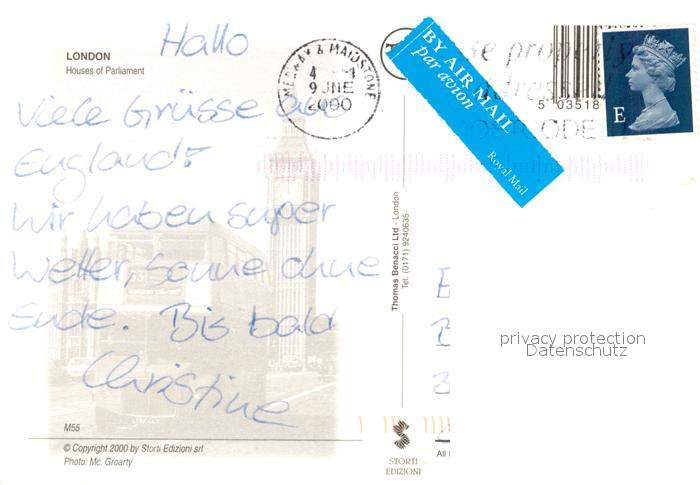 LONDON
Houses of Parliament
Hallo
Viele Grüsse aus
England!
Wir haben super
Wetter, Sonne ohne
Ende. Bis bald
Christine
M55
© Copyright 2000 by Storti Edizioni srl
Photo: Mc. Groarty
MEDWAY & MAIDSTONE
9 JNE
2000
A
BY AIR MAIL
par avion
Royal Mail
5 03518
POSTCODE
E
Thomas Benacci Ltd - London
Tel. (0171) 9240635
STORTI
EDIZIONI
All
E
B
3
privacy protection
Datenschutz